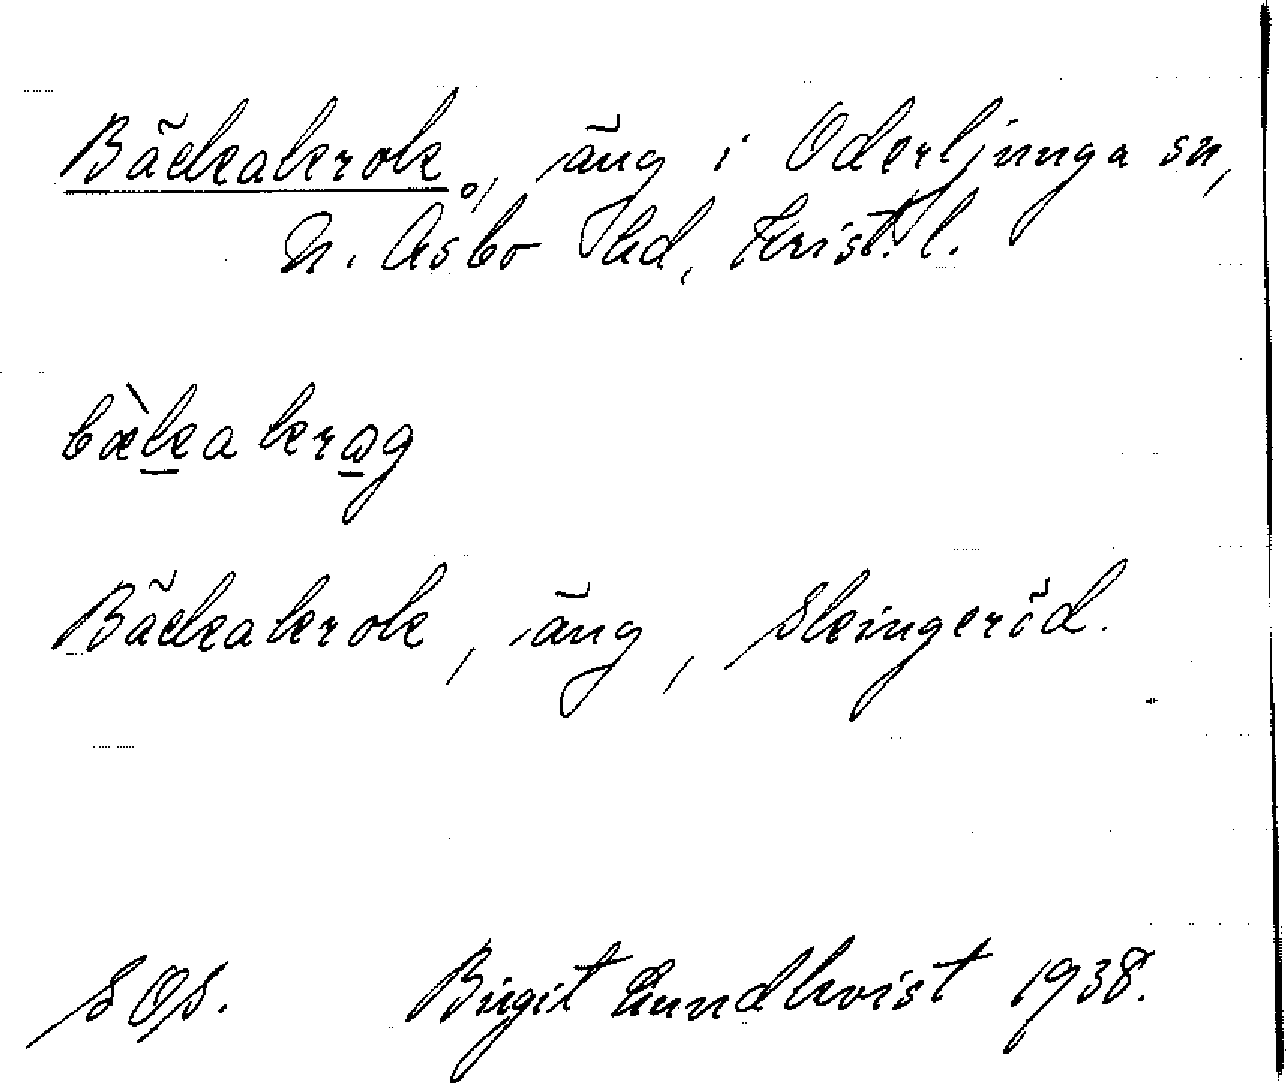 Bäckakrok, äng i Oderljunga sn,
N. Åsbo hd, Krist. l.
bæ̀kakrog
Bäckakrok, äng, Skingeröd.
SOS. Birgit Lundkvist 1938.